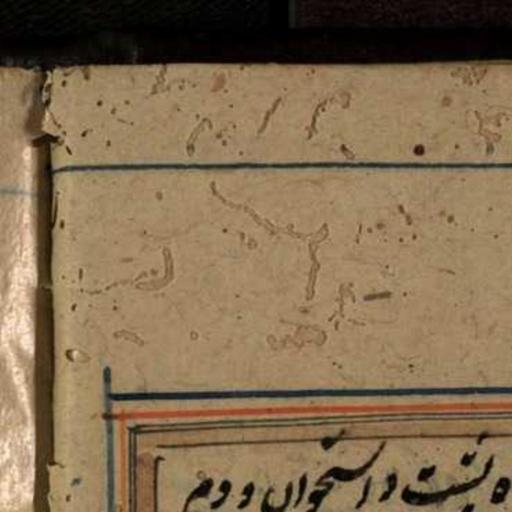 ه پشت و استخوان و دوم